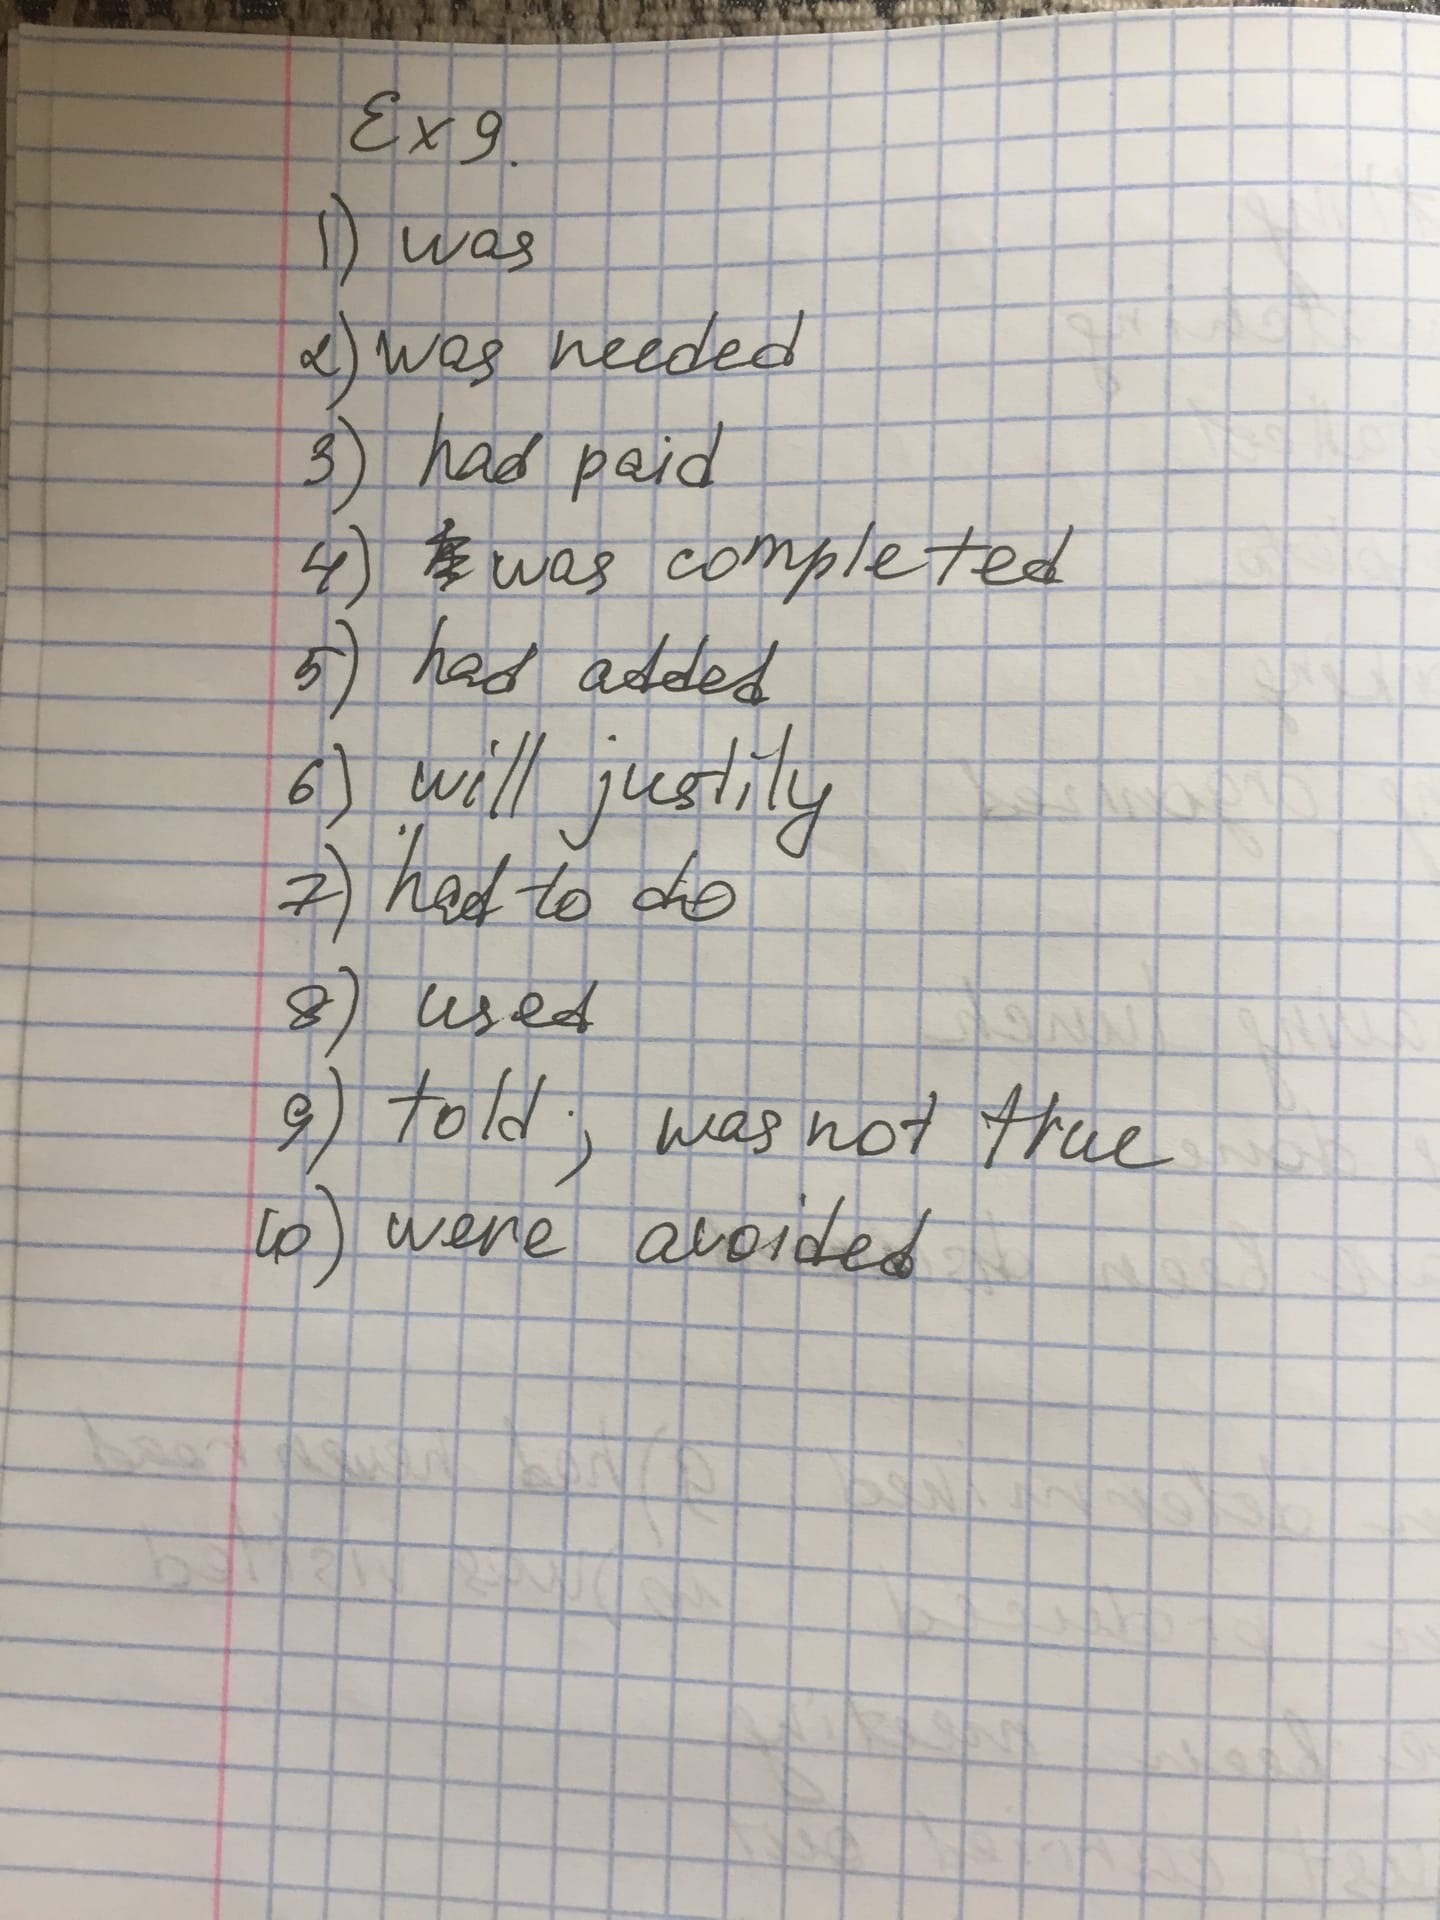 Ex 9.
1) was
2) was needed
3) had paid
4) was completed
5) had added
6) will justily
7) had to do
8) used
9) told; was not true
10) were avoided